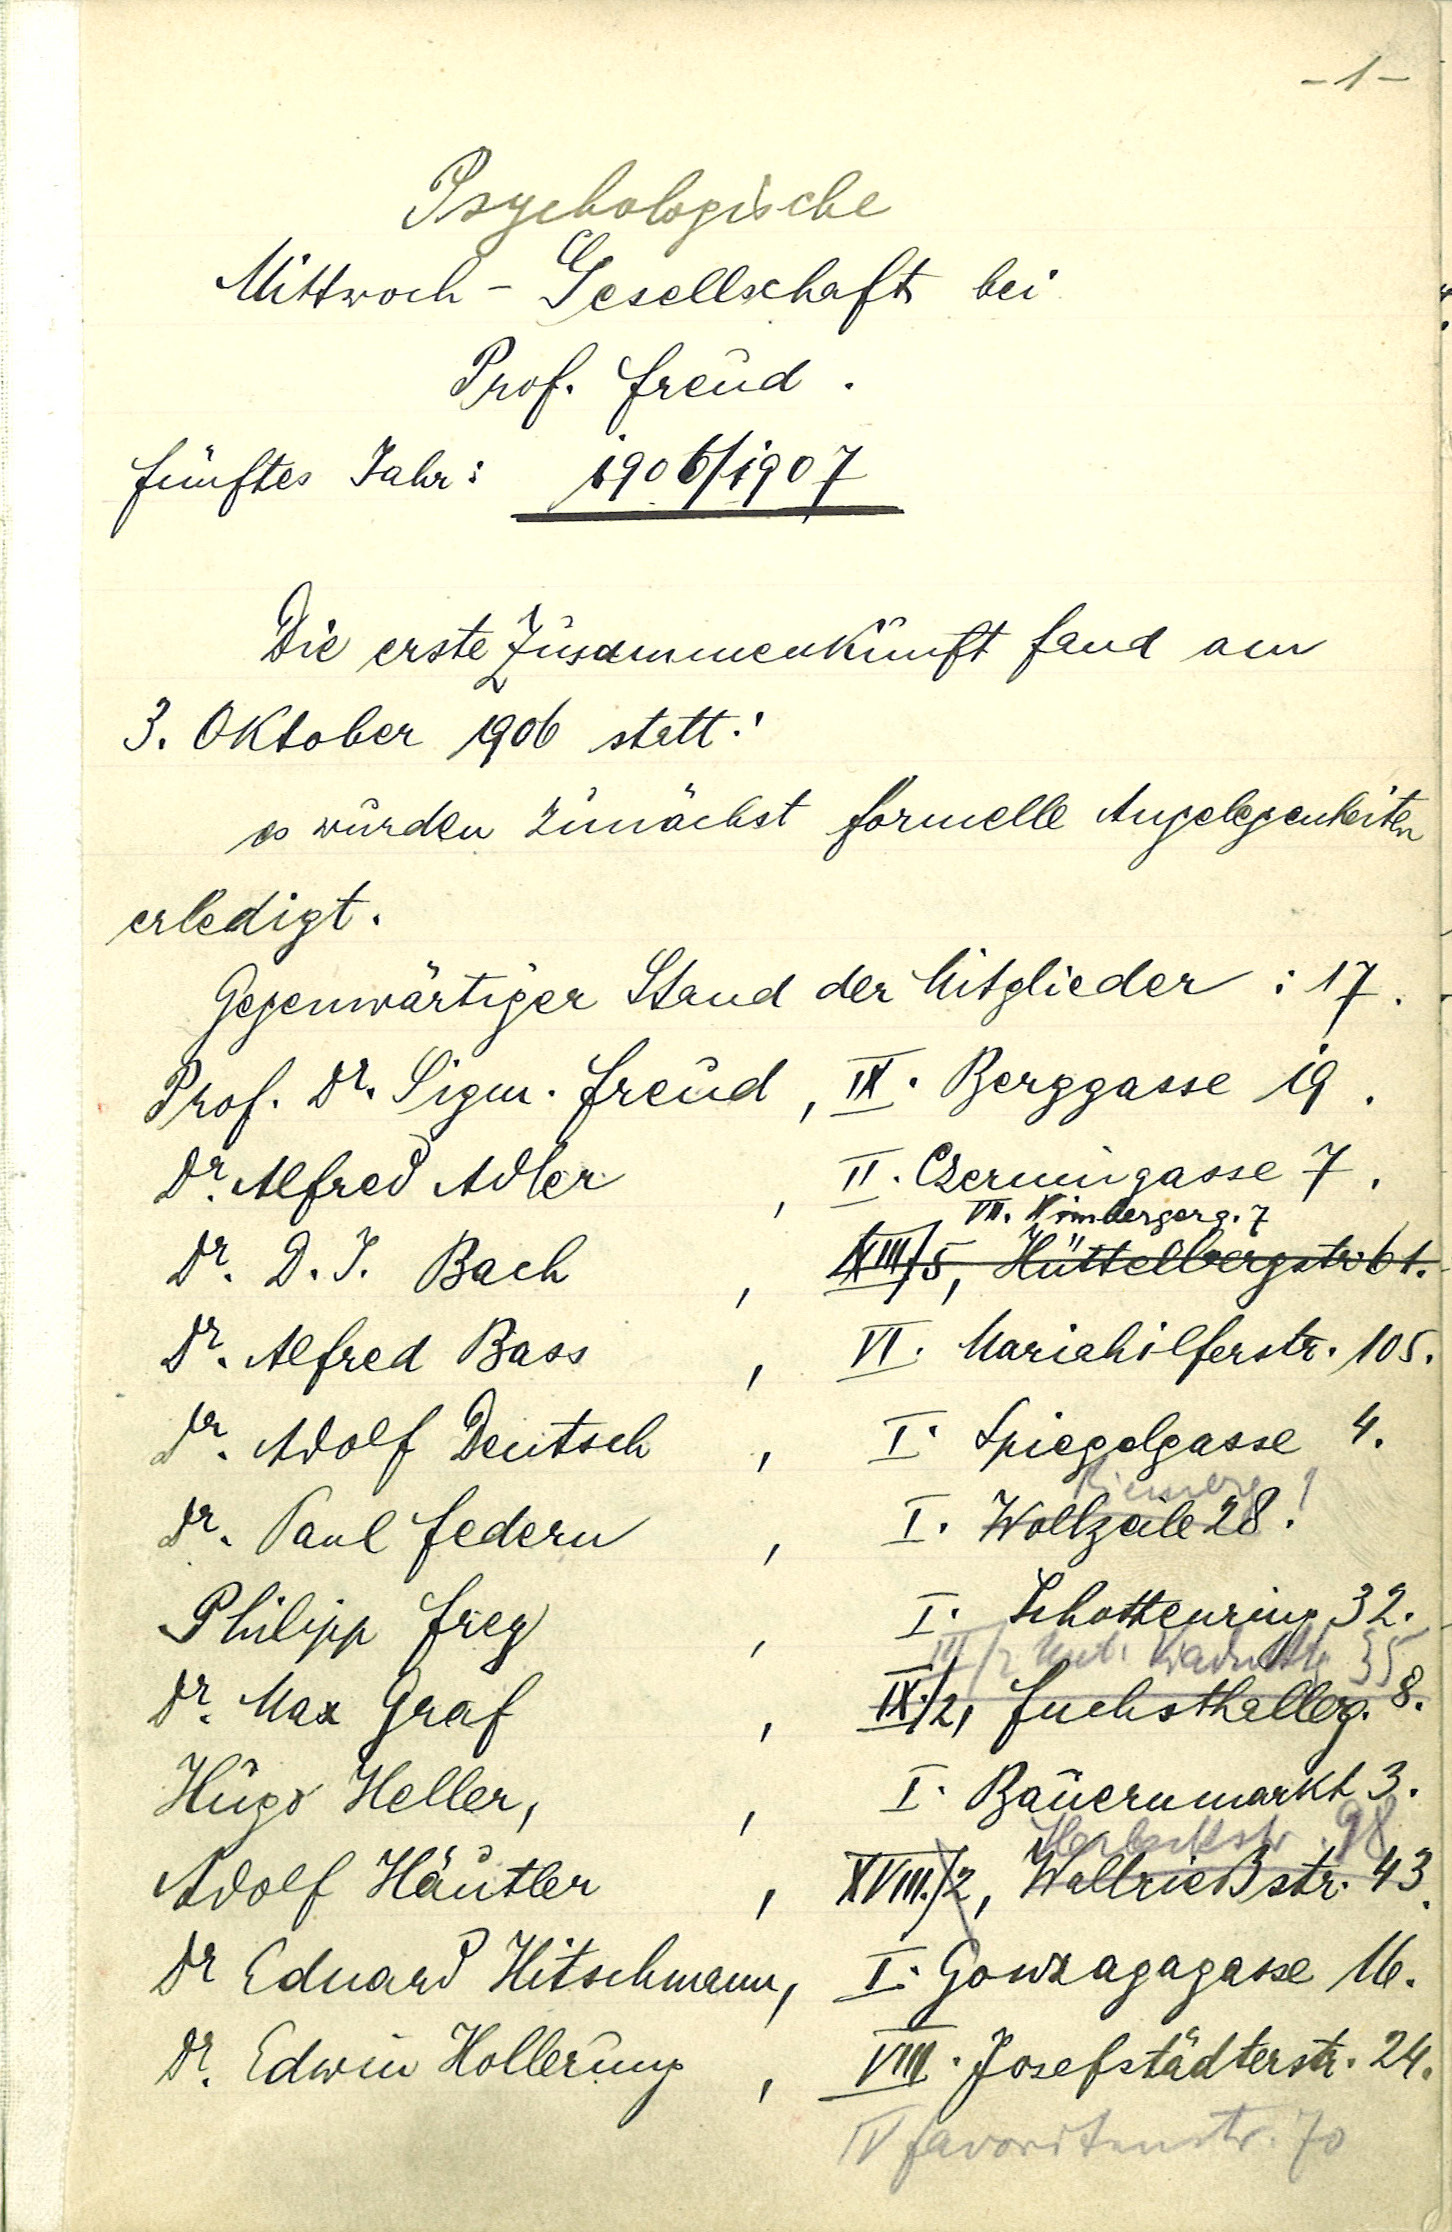 - 1 -
Psychologische
Mittwoch - Gesellschaft bei
Prof. Freud.
Fünftes Jahr: 1906/1907
Die erste Zusammenkunft fand am
3. Oktober 1906 statt:
es wurden zunächst formelle Angelegenheiten
erledigt.
Gegenwärtiger Stand der Mitglieder : 17.
Prof. Dr. Sigm. Freud, IX. Berggasse 19.
Dr. Alfred Adler, II. Czerningasse 7.
VII. Wimbergerg. 7
Dr. D. J. Bach, XIII/5, Hüttelbergstr 61.
Dr. Alfred Bass, VI. Mariahilferstr. 105.
Dr. Adolf Deutsch, I. Spiegelgasse 4.
Riemerg. 1
Dr. Paul Federn, I. Wollzeile 28.
Philipp Frey, I. Schottenring 32.
III/2 Unt. 35
Dr. Max Graf, IX./2, Fuchsthallerg. 8.
Hugo Heller,, I. Bauernmarkt 3.
Herbeckstr. 98
Adolf Häutler, XVIII./2, Wallrießstr. 43.
Dr Eduard Hitschmann, I. Gonzagagasse 16.
Dr. Edwin Hollerung, VIII. Josefstädterstr. 24.
IV Favoritenstr. 70